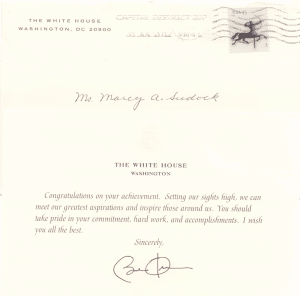 THE WHITE HOUSE
WASHINGTON, DC 20500
Ms. Marcy A. Sudock
THE WHITE HOUSE
WASHINGTON
Congratulations on your achievement. Setting our sights high, we can
meet our greatest aspirations and inspire those around us. You should
take pride in your commitment, hard work, and accomplishments. I wish
you all the best.
Sincerely,